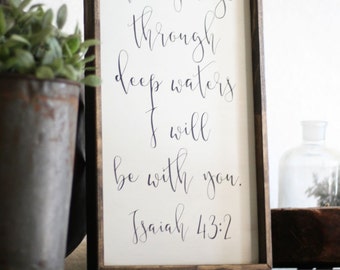 through
deep waters
I will
be with you.
Isaiah 43:2